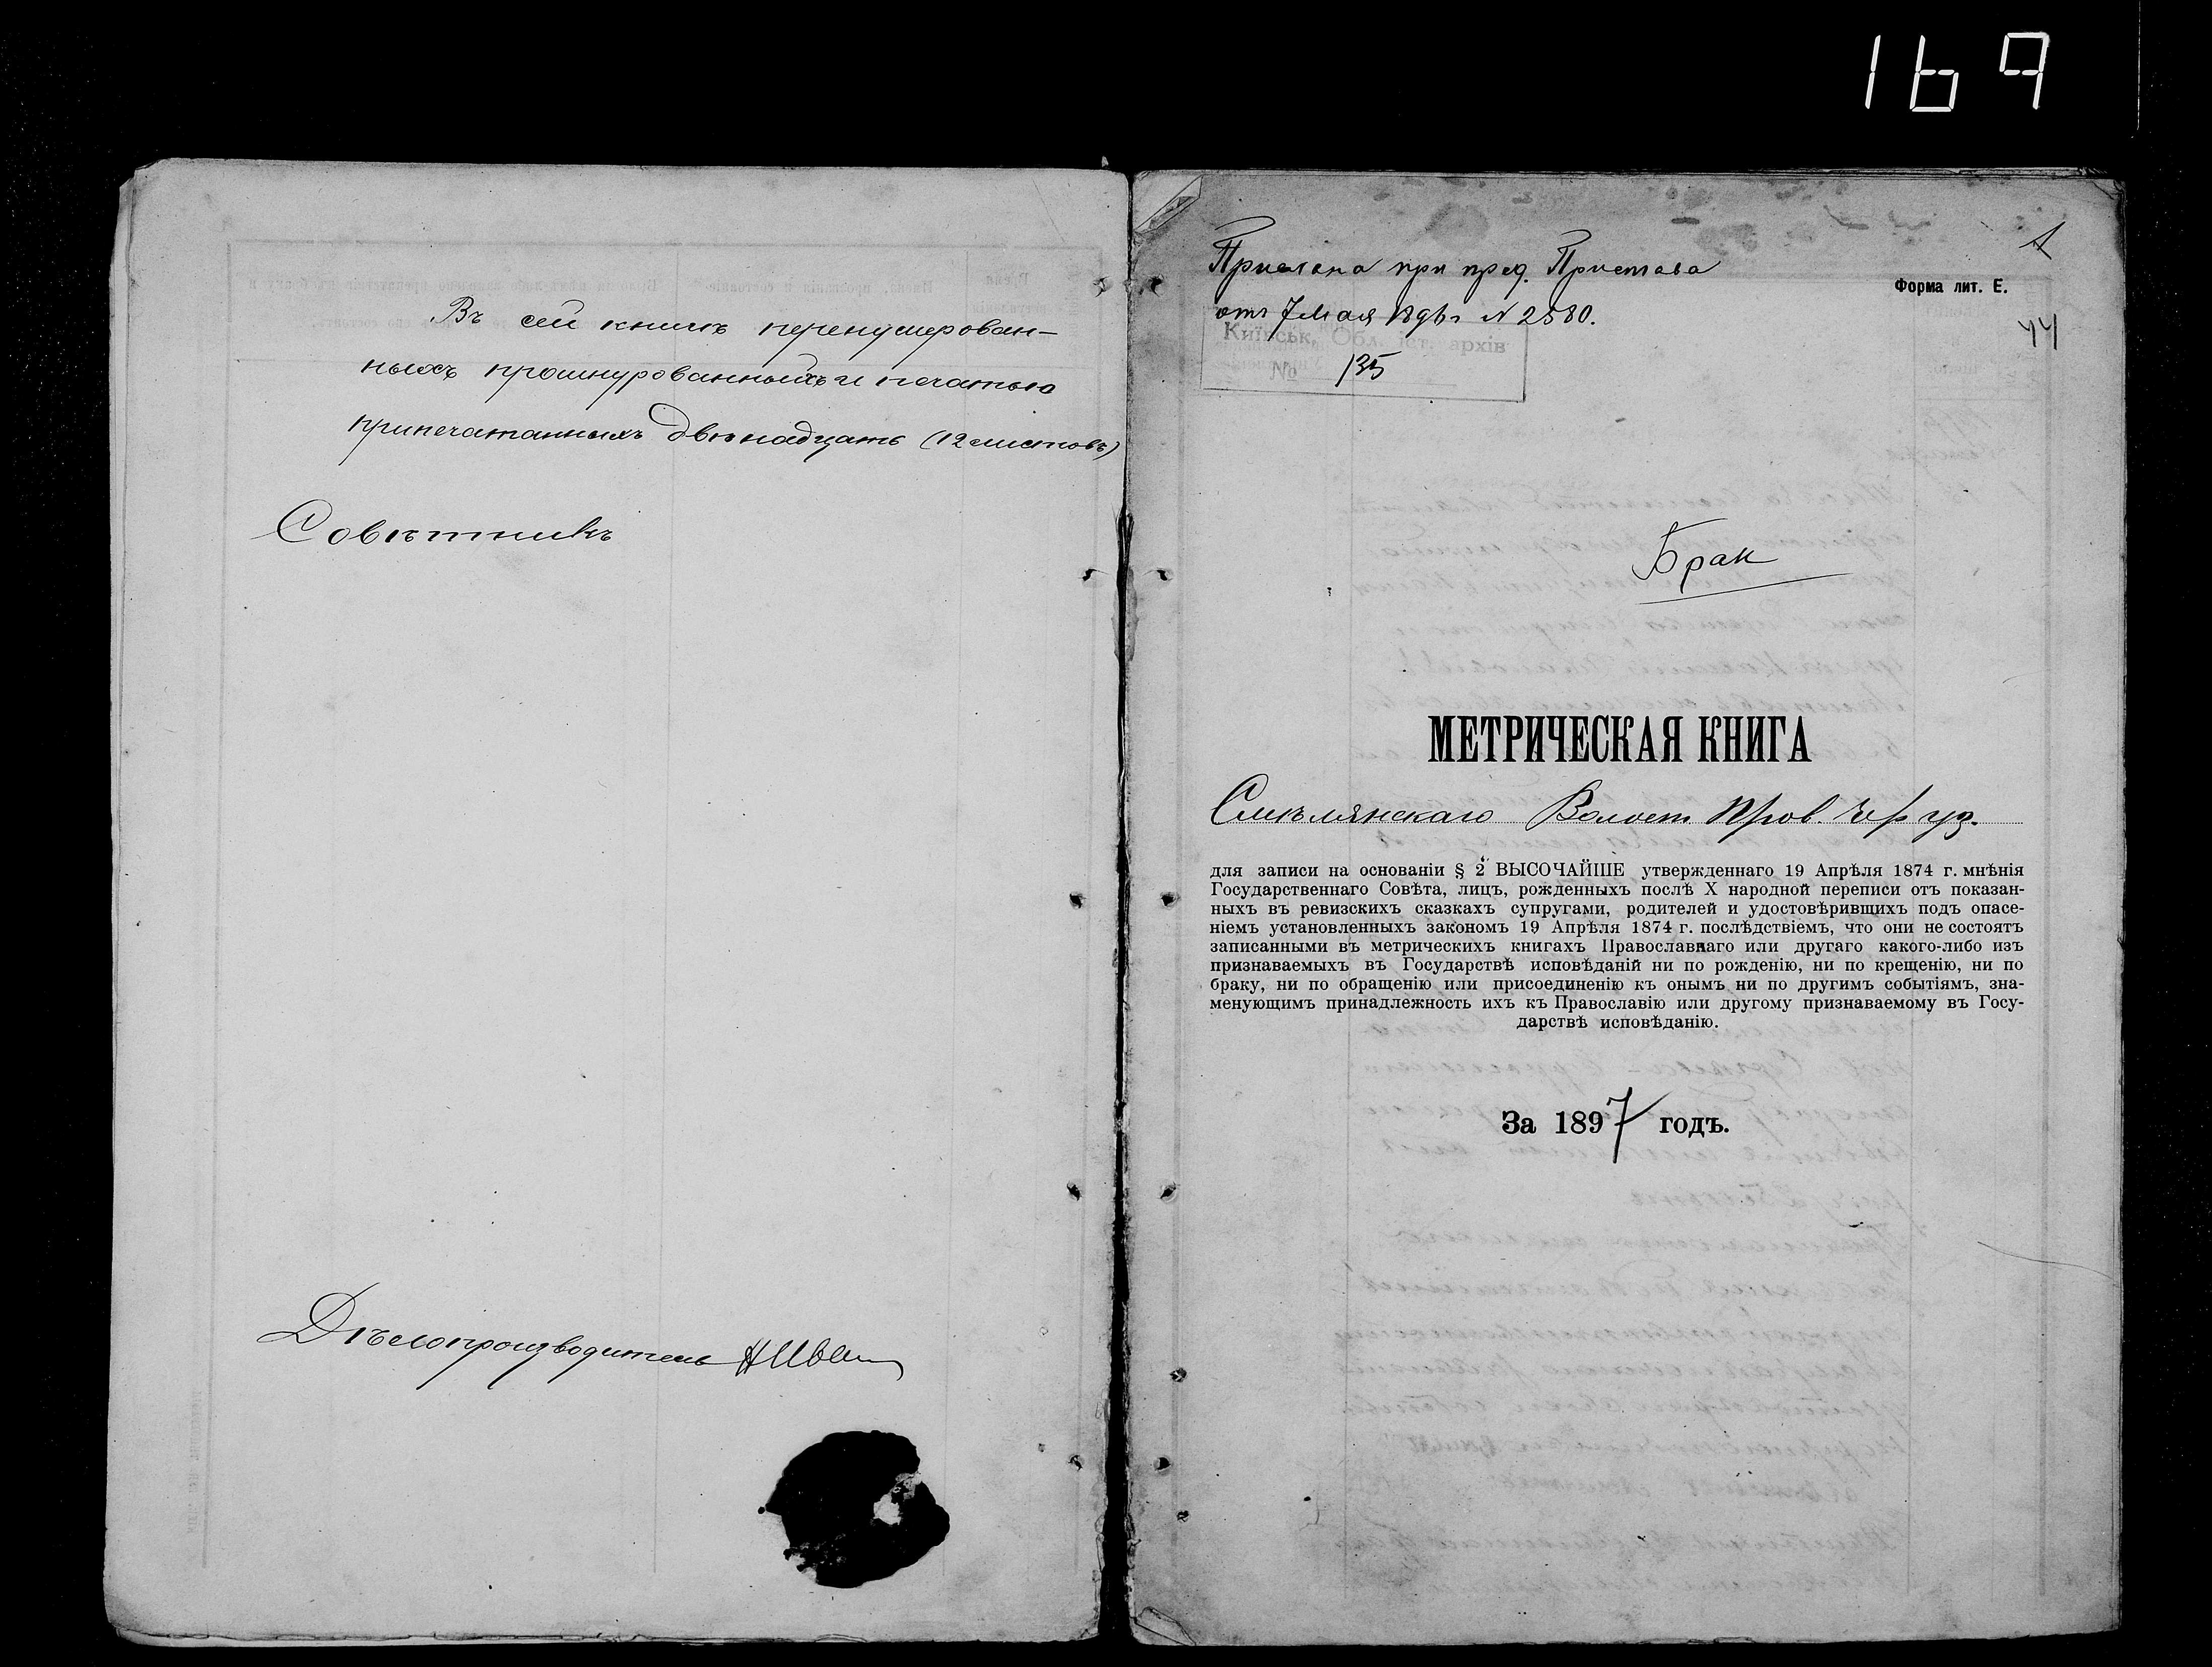 169
Въ сей книгѣ перенумерован-
ныхъ прошнурованныхъ и печатью
припечатанныхъ двѣнадцать (12 листовъ)
Совѣтникъ
Дѣлопроизводитель
1
Прислана при пред. Пристава
отъ 7 Мая 1898 г № 2580.
Форма лит. Е.
44
Київськ. Обл. іст. архів
№ 135
Брак
МЕТРИЧЕСКАЯ КНИГА
Смѣлянскаго Волост. Прав. Чер уз.
для записи на основаніи § 2 ВЫСОЧАЙШЕ утвержденнаго 19 Апрѣля 1874 г. мнѣнія
Государственнаго Совѣта, лицъ, рожденныхъ послѣ X народной переписи отъ показан-
ныхъ въ ревизскихъ сказкахъ супругами, родителей и удостовѣрившихъ подъ опасе-
ніемъ установленныхъ закономъ 19 Апрѣля 1874 г. послѣдствіемъ, что они не состоятъ
записанными въ метрическихъ книгахъ Православнаго или другаго какого-либо изъ
признаваемыхъ въ Государствѣ исповѣданій ни по рожденію, ни по крещенію, ни по
браку, ни по обращенію или присоединенію къ онымъ ни по другимъ событіямъ, зна-
менующимъ принадлежность ихъ къ Православію или другому признаваемому въ Госу-
дарствѣ исповѣданію.
За 1897 годъ.